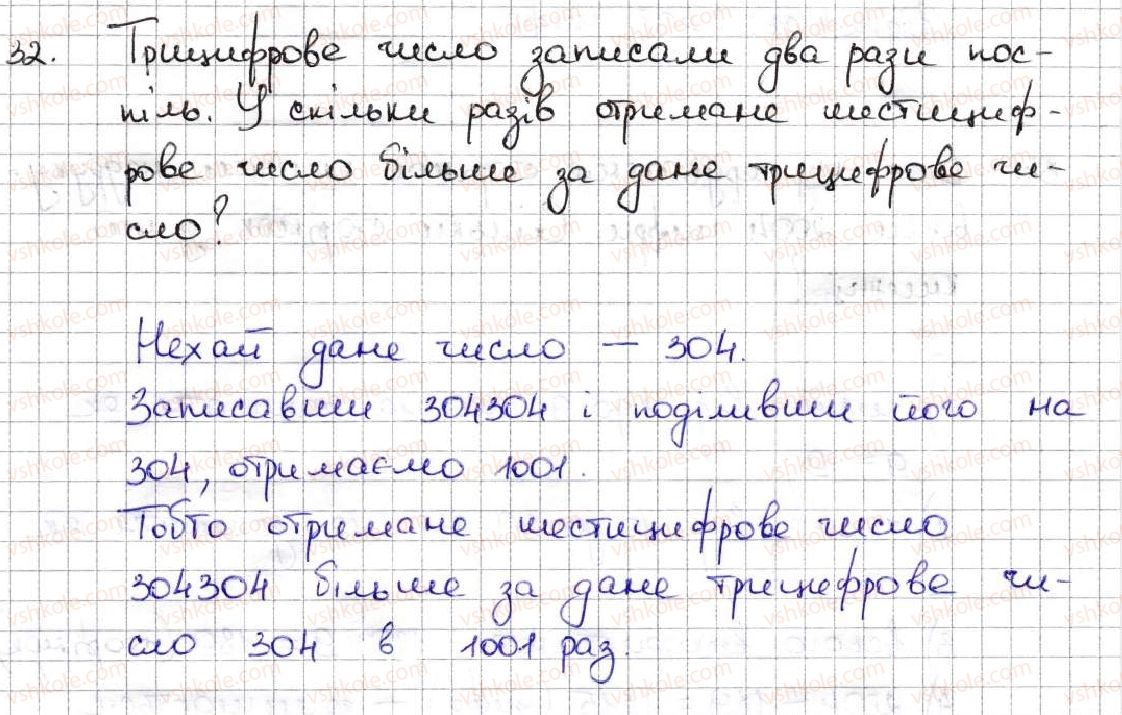 32. Трицифрове число записали два рази пос-
піль. У скільки разів отримане шестициф-
рове число більше за дане трицифрове чи-
сло?
Нехай дане число — 304.
Записавши 304304 і поділивши його на
304, отримаємо 1001.
Тобто отримане шестицифрове число
304304 більше за дане трицифрове чи-
сло 304 в 1001 раз.